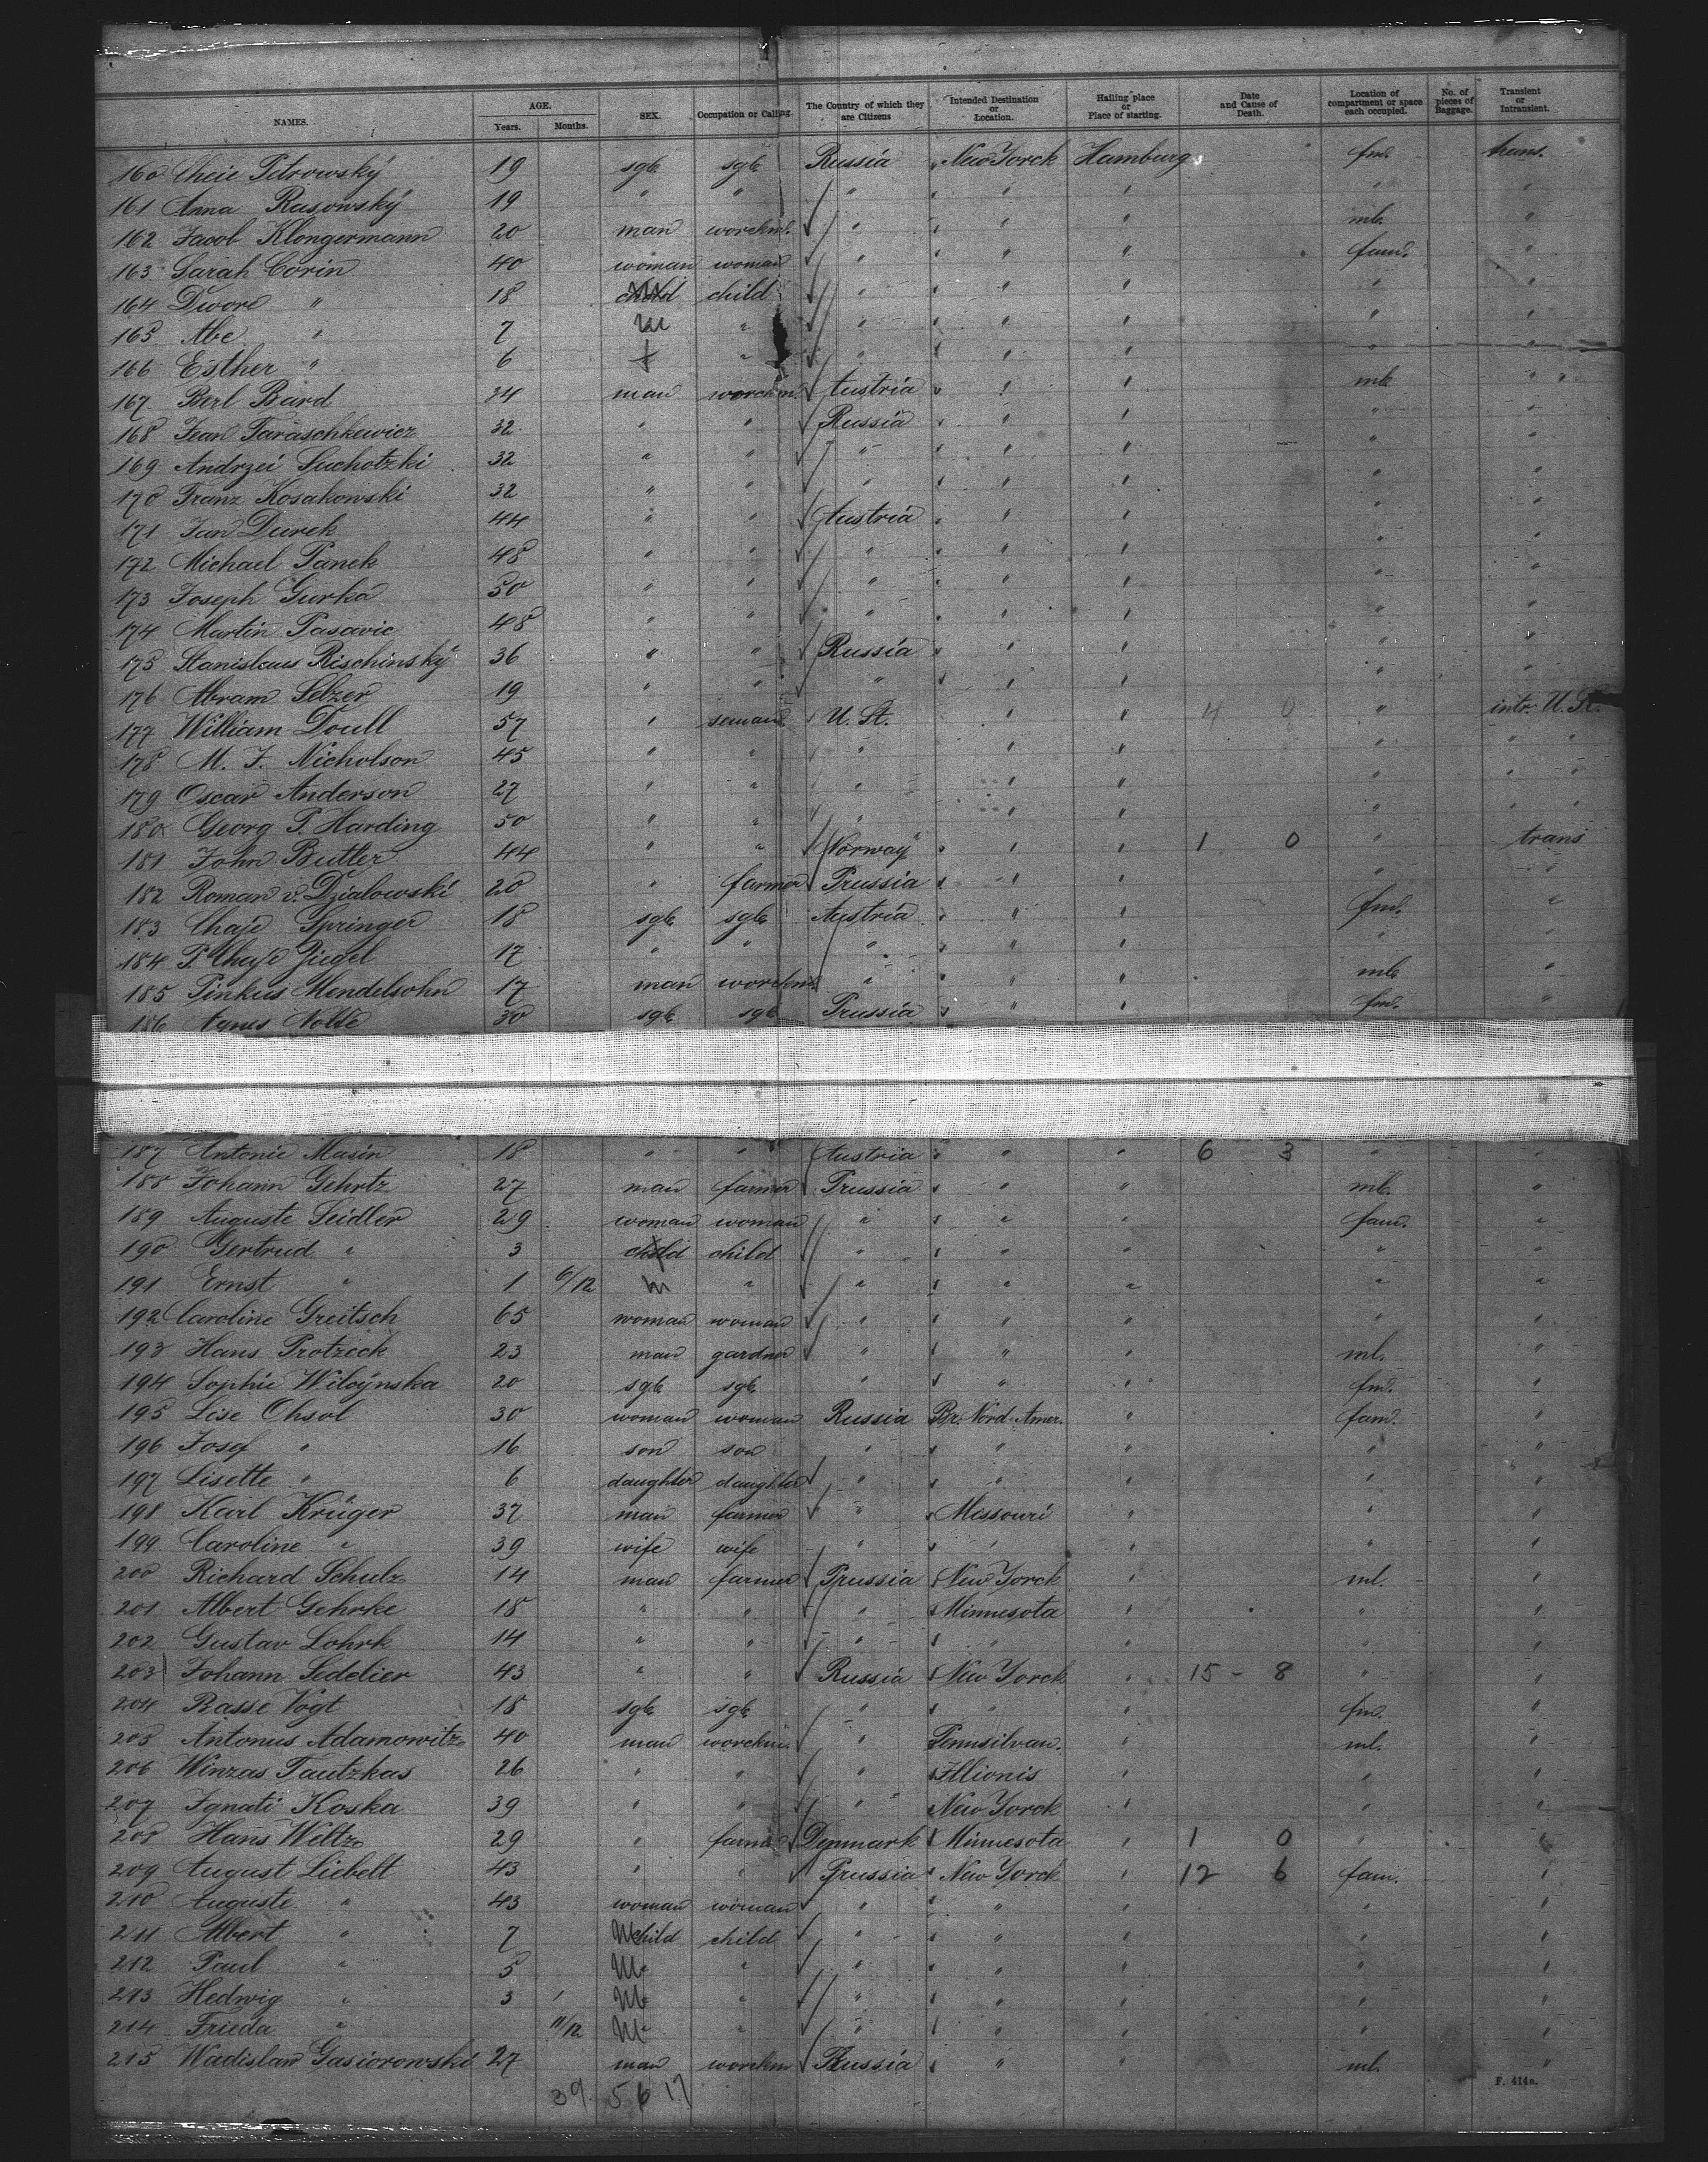 NAMES. AGE. Years. Months. SEX. Occupation or Calling. The Country of which they are Citizens Intended Destination or Location. Hailing place or Place of starting. Date and Cause of Death. Location of compartment or space each occupied. No. of pieces of Baggage. Transient or Intransient.
160 Cheie Petrowský 19 sgle sgle Russia New Yorck Hamburg fml. trans.
161 Anna Rusowský 19 " " " " " " "
162 Jacob Klongermann 20 man workm. " " " ml. "
163 Sarah Corin 40 woman woman " " " fam. "
164 Dwore " 18 child child " " " " "
165 Abe " 7 m " " " " " "
166 Esther " 6 f " " " " " "
167 Berl Bard 34 man workm. Austria " " ml. "
168 Jean Taraschkewicz 32 " " Russia " " " "
169 Andrzei Suchotzki 32 " " " " " " "
170 Franz Kosakowski 32 " " " " " " "
171 Jan Durek 44 " " Austria " " " "
172 Michael Panek 48 " " " " " " "
173 Joseph Gurka 50 " " " " " " "
174 Martin Pasavic 48 " " " " " " "
175 Stanislaus Rischinský 36 " " Russia " " " "
176 Abram Selzer 19 " " " " " " "
177 William Doull 57 " seman U. St. " " 4 0 " intr. U. St.
178 M. J. Nicholson 45 " " " " " " "
179 Oscar Anderson 27 " " " " " " "
180 Georg P. Harding 50 " " " " " " "
181 John Butler 44 " " Norway " " 1 0 " trans
182 Roman v. Dzialowski 20 " farmer Prussia " " " "
183 Chaje Springer 18 sgle sgle Austria " " fml. "
184 P. Chaje Ziegel 17 " " " " " " "
185 Pinkus Mendelsohn 17 man workm. " " " ml. "
186 Agnes Nolte 30 sgle sgle Prussia " " fml. "
187 Antonie Masin 18 " " Austria " " 6 3 " "
188 Johann Gehrtz 27 man farmer Prussia " " ml. "
189 Auguste Seidler 29 woman woman " " " fam. "
190 Gertrud " 3 child child " " " " "
191 Ernst " 1 6/12 m " " " " " "
192 Caroline Greitsch 65 woman woman " " " " "
193 Hans Protzeck 23 man gardner " " " ml. "
194 Sophie Wilcÿnska 20 sgle sgle " " " fml. "
195 Lise Ohsol 30 woman woman Russia Br. Nord. Amer. " fam. "
196 Josef " 16 son son " " " " "
197 Lisette " 6 daughter daughter " " " " "
198 Karl Krüger 37 man farmer " Missouri " " "
199 Caroline " 39 wife wife " " " " "
200 Richard Schulz 14 man farmer Prussia New Yorck " ml. "
201 Albert Gehrke 18 " " " Minnesota " " "
202 Gustav Lohrk 14 " " " " " " "
203 Johann Sedelier 43 " " Russia New Yorck " 15 - 8 " "
204 Basse Vogt 18 sgle sgle " " " fml. "
205 Antonus Adamowitz 40 man workm " Pennsilvan. " ml. "
206 Winzas Tautzkas 26 " " " Illionis " " "
207 Ignati Koska 39 " " " New Yorck " " "
208 Hans Weltz 29 " farmer Denmark Minnesota " 1 0 " "
209 August Liebelt 43 " " Prussia New Yorck " 12 6 fam. "
210 Auguste " 43 woman woman " " " " "
211 Albert " 7 child child " " " " "
212 Paul " 5 M " " " " " "
213 Hedwig " 3 M " " " " " "
214 Frieda " 11/12 M " " " " " "
215 Wadislaw Gasiorowski 27 man workm Russia " " ml. "
39 5 6 17
F. 414a.